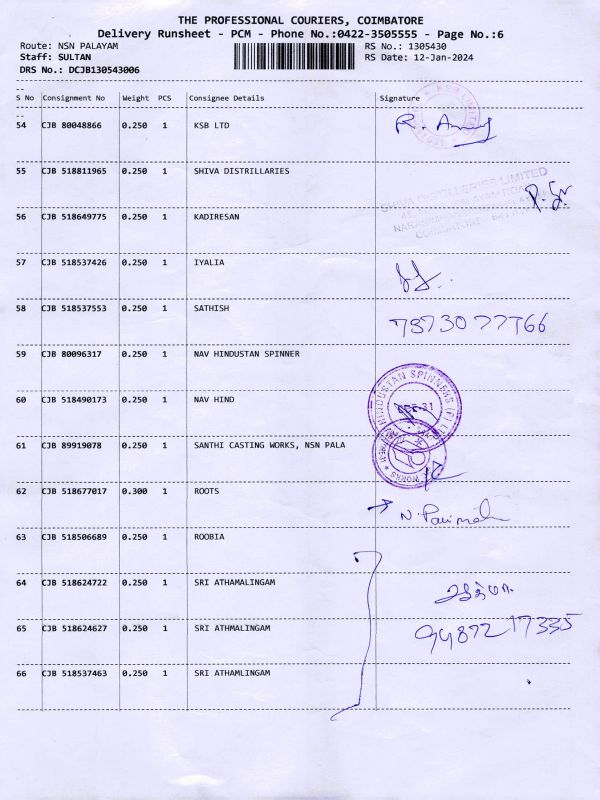 THE PROFESSIONAL COURIERS, COIMBATORE
Delivery Runsheet - PCM - Phone No.:0422-3505555 - Page No.:6
Route: NSN PALAYAM RS No.: 1305430
Staff: SULTAN RS Date: 12-Jan-2024
DRS No.: DCJB130543006
--
S No Consignment No Weight PCS Consignee Details Signature
--
54 CJB 80048866 0.250 1 KSB LTD
KSB LIMITED
55 CJB 518811965 0.250 1 SHIVA DISTRILLARIES
SHIVA DISTILLERIES LIMITED
56 CJB 518649775 0.250 1 KADIRESAN
COIMBATORE
57 CJB 518537426 0.250 1 IYALIA
58 CJB 518537553 0.250 1 SATHISH
59 CJB 80096317 0.250 1 NAV HINDUSTAN SPINNER
60 CJB 518490173 0.250 1 NAV HIND
HINDUSTAN SPINNERS (P) LTD
61 CJB 89919078 0.250 1 SANTHI CASTING WORKS, NSN PALA
WORKS
62 CJB 518677017 0.300 1 ROOTS
63 CJB 518506689 0.250 1 ROOBIA
64 CJB 518624722 0.250 1 SRI ATHAMALINGAM
65 CJB 518624627 0.250 1 SRI ATHMALINGAM
94872 17335
66 CJB 518537463 0.250 1 SRI ATHAMLINGAM